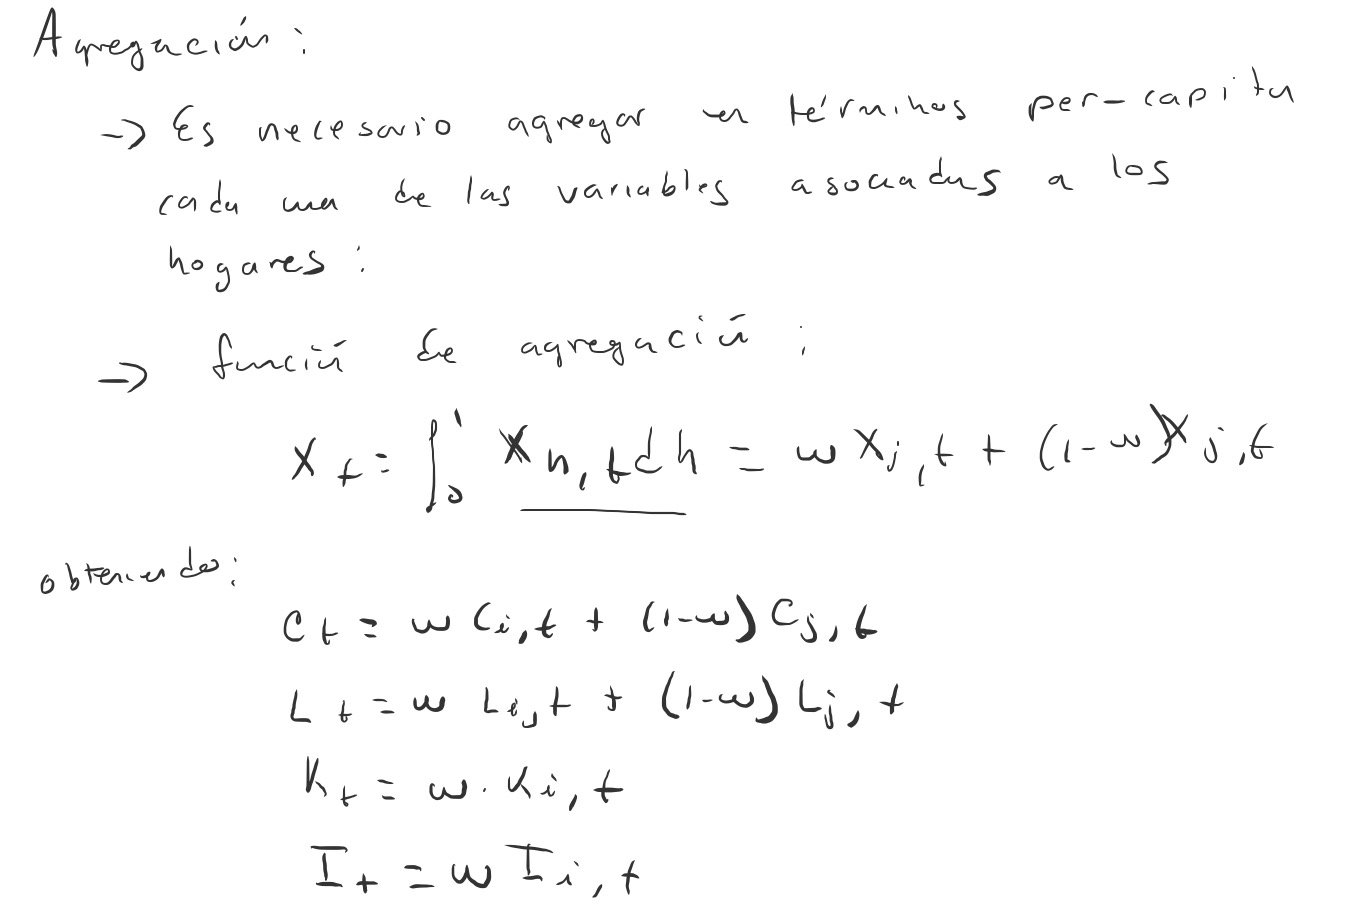 Agregación:
→ Es necesario agregar en términos per-capita
cada una de las variables asociadas a los
hogares:
→ función de agregación:
X_t = ∫_0^1 X_{h,t} dh = w X_{i,t} + (1-w) X_{j,t}
obteniendo:
C_t = w C_{i,t} + (1-w) C_{j,t}
L_t = w L_{i,t} + (1-w) L_{j,t}
K_t = w · K_{i,t}
I_t = w I_{i,t}